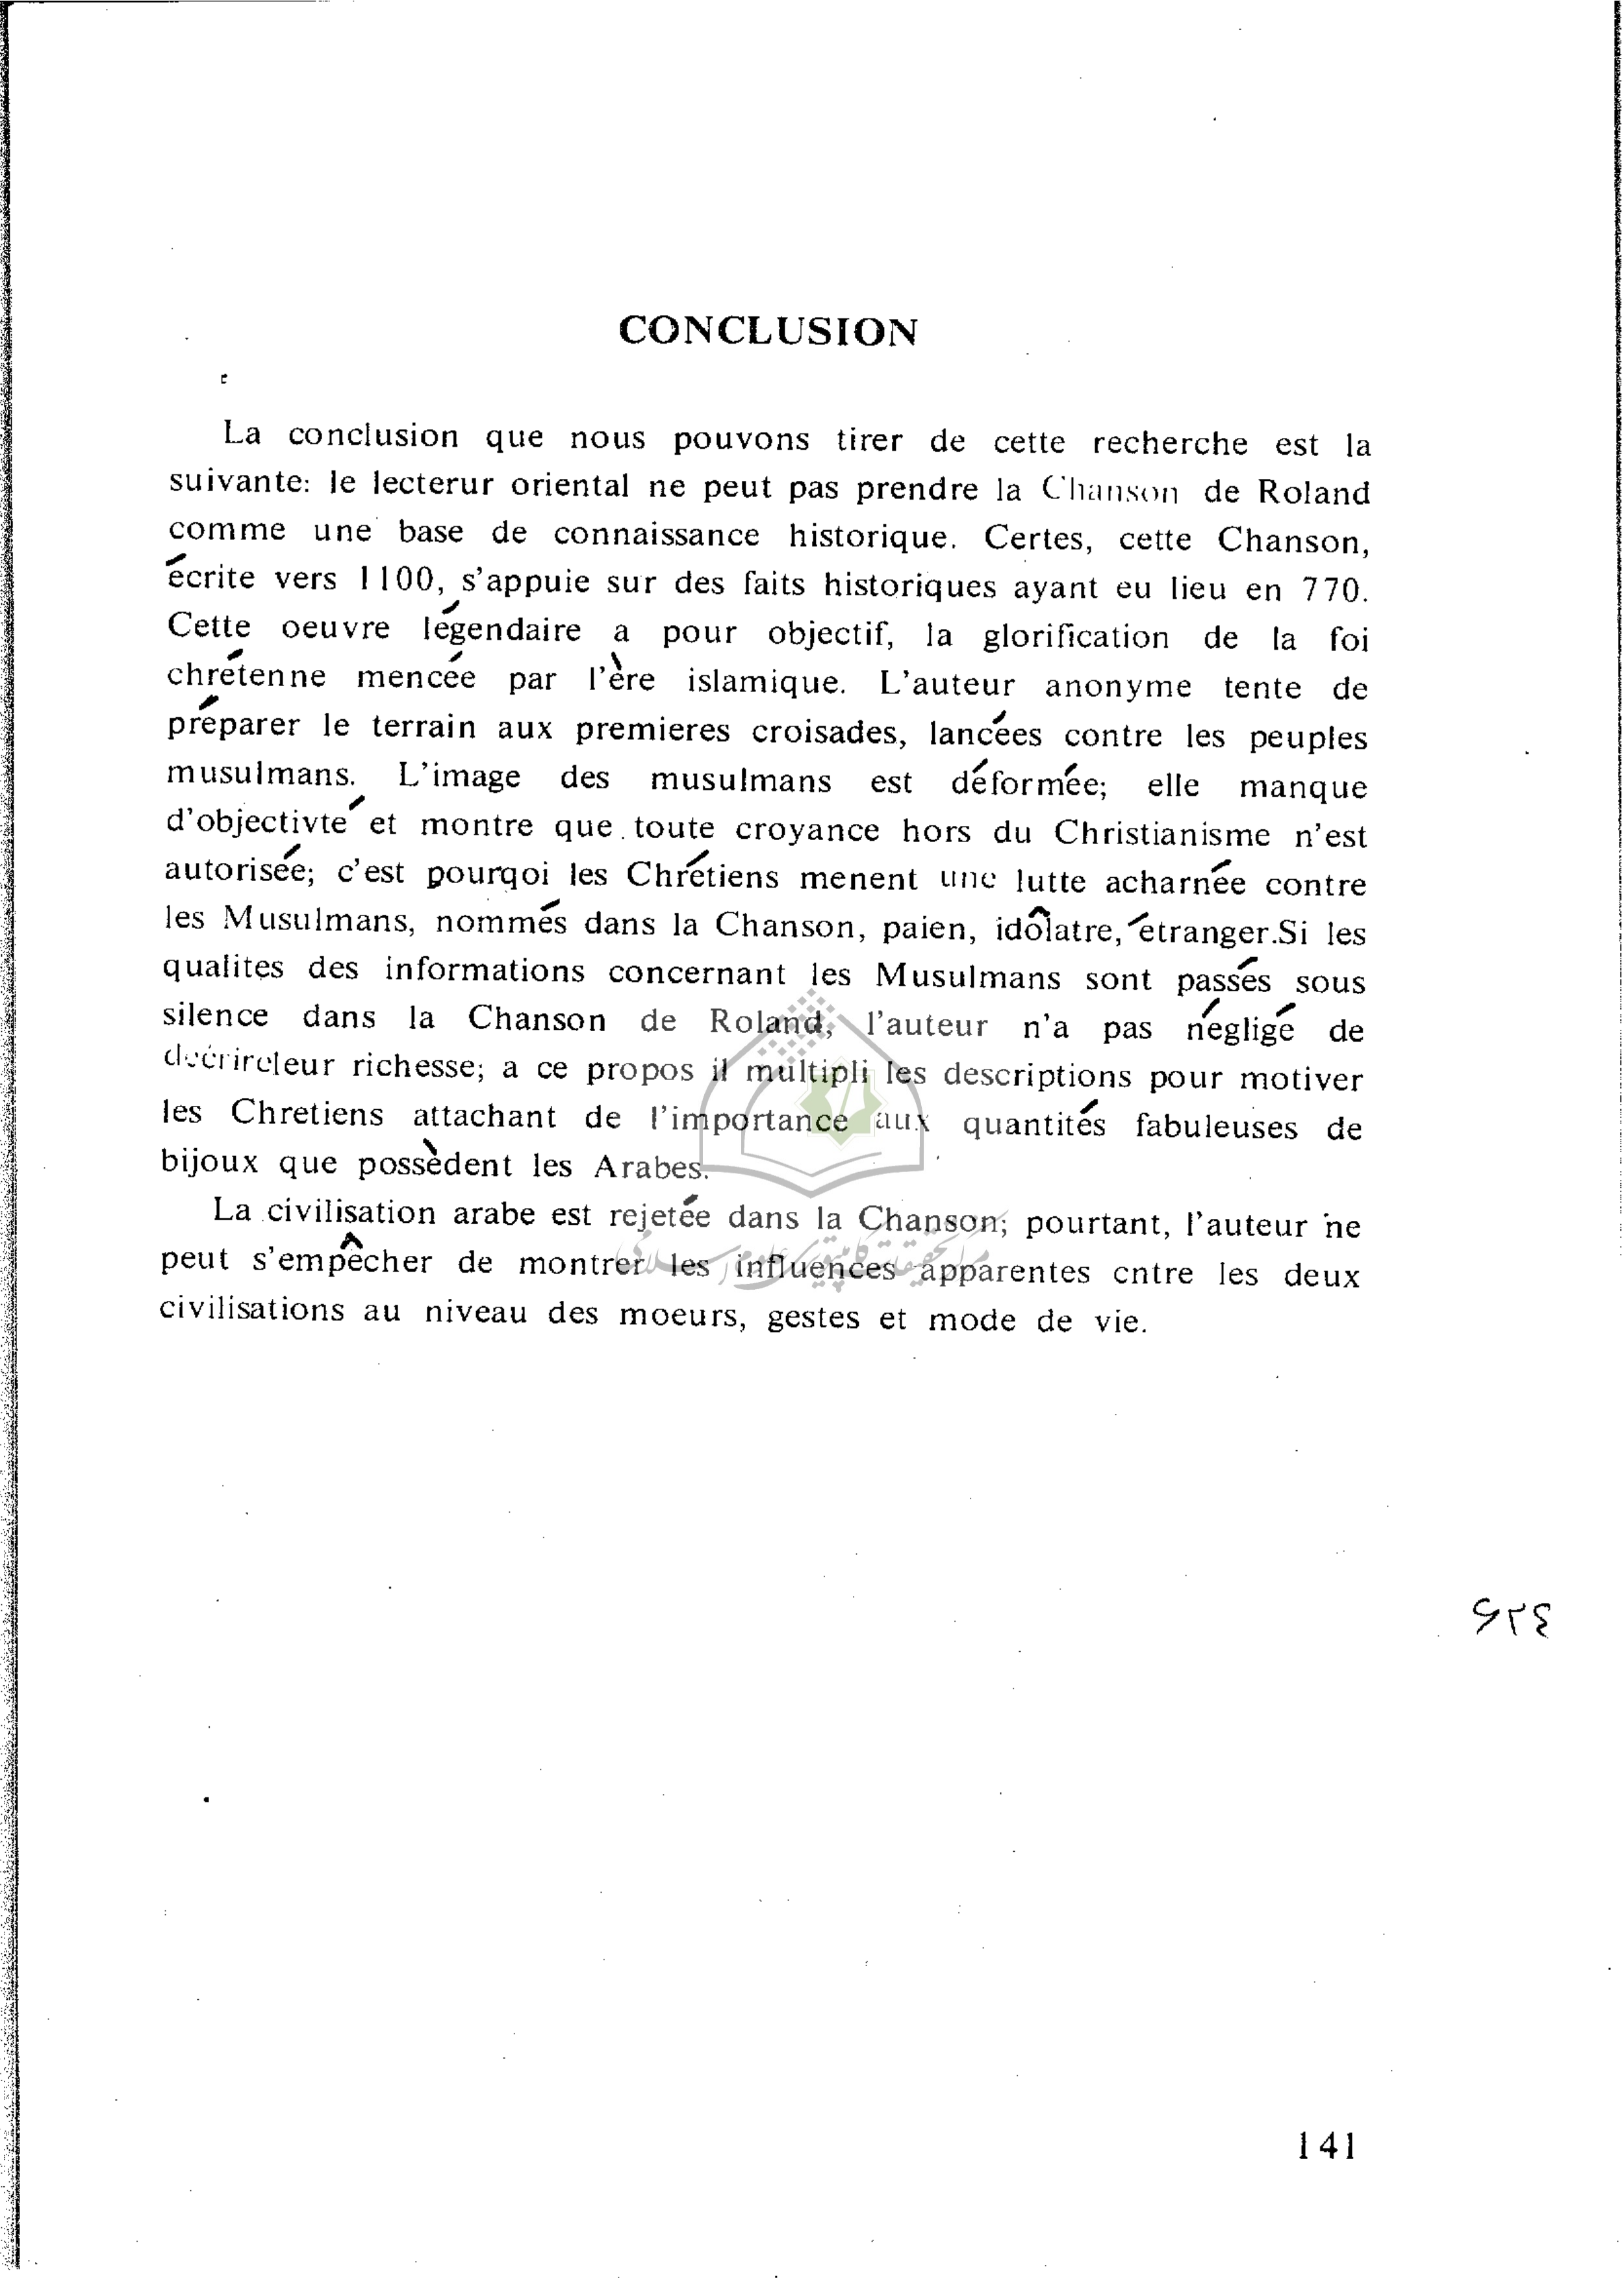 CONCLUSION
La conclusion que nous pouvons tirer de cette recherche est la
suivante: le lecterur oriental ne peut pas prendre la Chanson de Roland
comme une base de connaissance historique. Certes, cette Chanson,
écrite vers 1100, s'appuie sur des faits historiques ayant eu lieu en 770.
Cette oeuvre légendaire a pour objectif, la glorification de la foi
chrétenne mencée par l'ère islamique. L'auteur anonyme tente de
préparer le terrain aux premieres croisades, lancées contre les peuples
musulmans. L'image des musulmans est déformée; elle manque
d'objectivté et montre que toute croyance hors du Christianisme n'est
autorisée; c'est pourqoi les Chrétiens menent une lutte acharnée contre
les Musulmans, nommés dans la Chanson, paien, idôlatre, étranger.Si les
qualites des informations concernant les Musulmans sont passés sous
silence dans la Chanson de Roland, l'auteur n'a pas négligé de
decrireleur richesse; a ce propos il multipli les descriptions pour motiver
les Chretiens attachant de l'importance aux quantités fabuleuses de
bijoux que possèdent les Arabes.
La civilisation arabe est rejetée dans la Chanson; pourtant, l'auteur ne
peut s'empêcher de montrer les influences apparentes entre les deux
civilisations au niveau des moeurs, gestes et mode de vie.
مرکز تحقیقات کامپیوتری علوم اسلامی
141